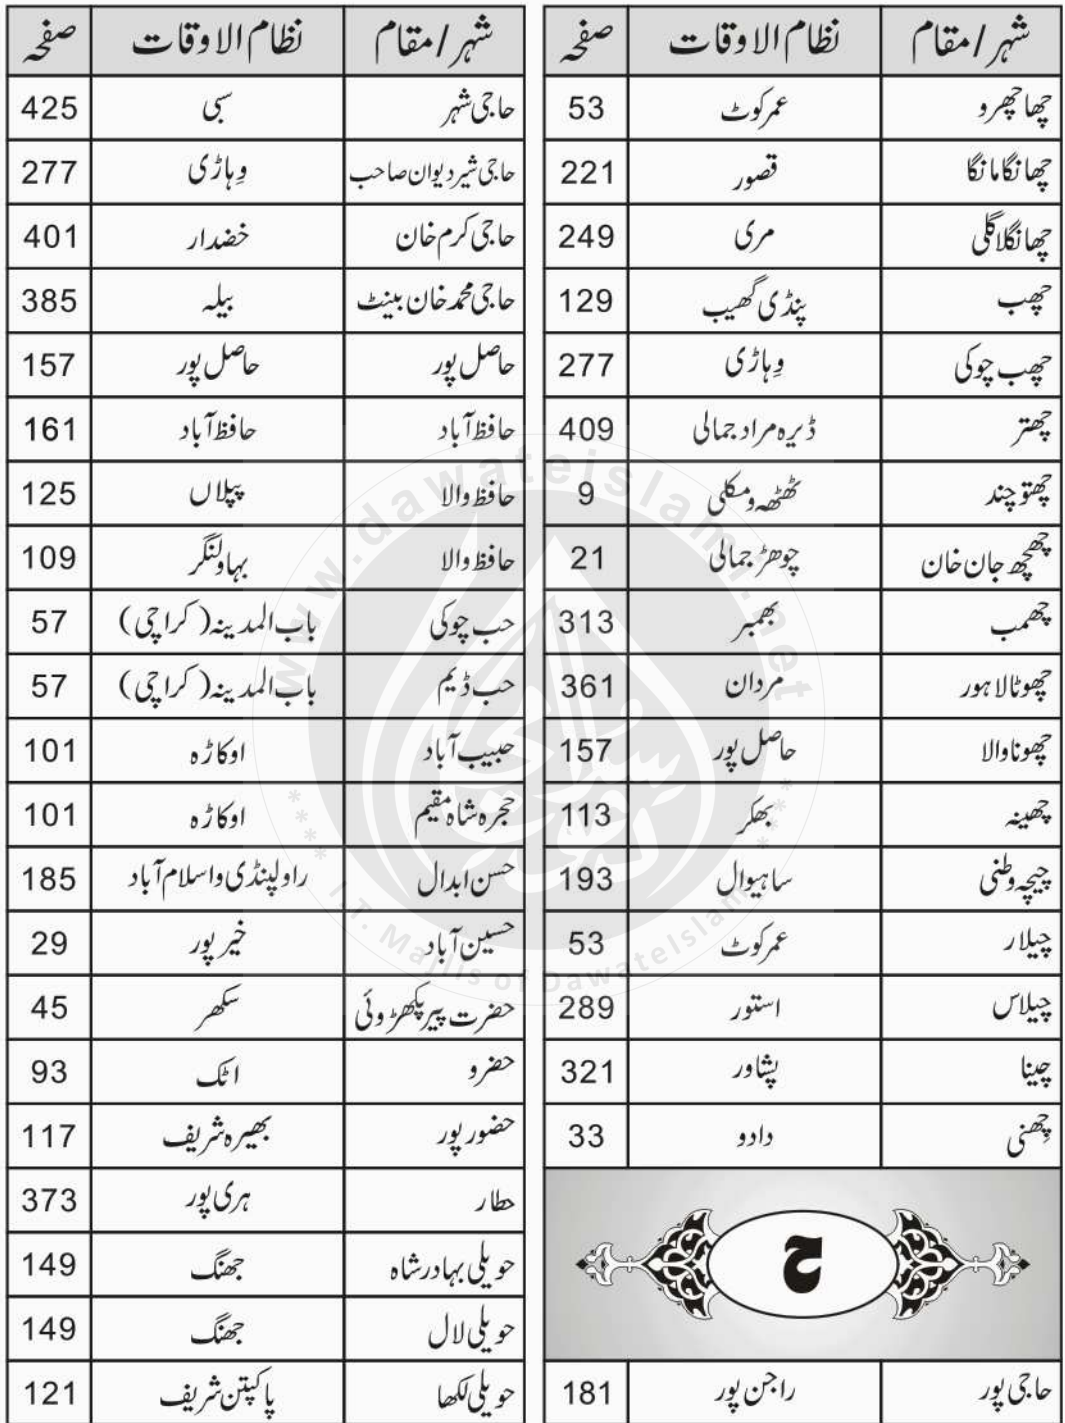 شہر/مقام نظام الاوقات صفحہ
چھاچھرو عمرکوٹ 53
چھانگا مانگا قصور 221
چھانگلا گلی مری 249
چھب پنڈی گھیب 129
چھب چوکی وِہاڑی 277
چھتر ڈیرہ مراد جمالی 409
چھتو چند ٹھٹھہ و مکلی 9
چھچھ جان خان چوھڑ جمالی 21
چھمب بھمبر 313
چھوٹا لاہور مردان 361
چھونا والا حاصل پور 157
چھینہ بھکر 113
چیچہ وطنی ساہیوال 193
چیلار عمرکوٹ 53
چیلاس استور 289
چینا پشاور 321
چھنی دادو 33
ح
حاجی پور راجن پور 181
شہر/مقام نظام الاوقات صفحہ
حاجی شہر سبی 425
حاجی شیر دیوان صاحب وِہاڑی 277
حاجی کرم خان خضدار 401
حاجی محمد خان بینٹ بیلہ 385
حاصل پور حاصل پور 157
حافظ آباد حافظ آباد 161
حافظ والا پپلاں 125
حافظ والا بہاولنگر 109
حب چوکی باب المدینہ (کراچی) 57
حب ڈیم باب المدینہ (کراچی) 57
حبیب آباد اوکاڑہ 101
حجرہ شاہ مقیم اوکاڑہ 101
حسن ابدال راولپنڈی و اسلام آباد 185
حسین آباد خیرپور 29
حضرت پیر پکھڑوئی سکھر 45
حضرو اٹک 93
حضور پور بھیرہ شریف 117
حطار ہری پور 373
حویلی بہادر شاہ جھنگ 149
حویلی لال جھنگ 149
حویلی لکھا پاکپتن شریف 121
www.dawateislami.net
I.T. Majlis of DawateIslami